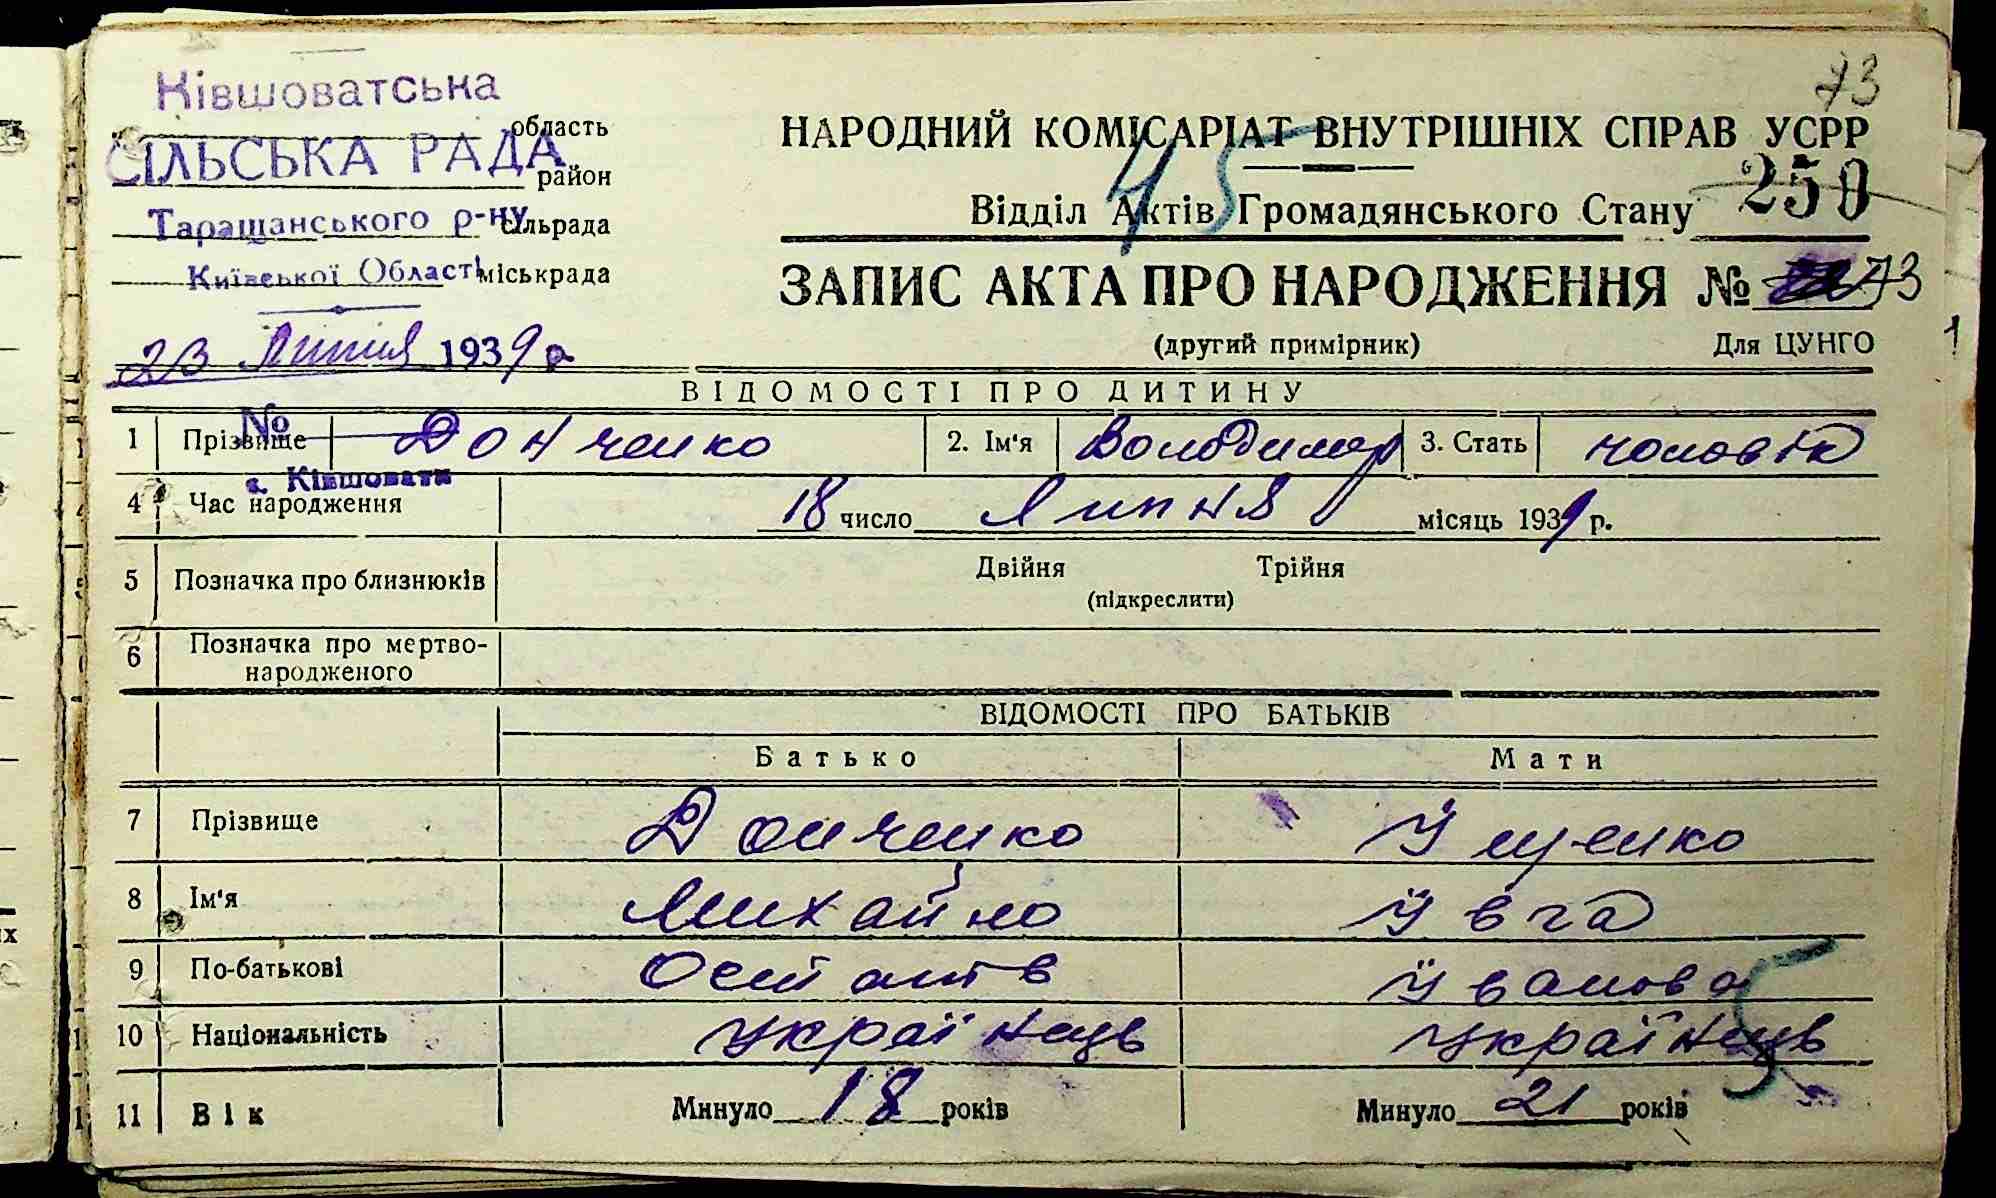 73
Ківшоватська
область
СІЛЬСЬКА РАДА
район
Таращанського р-ну
сільрада
Київської Області
міськрада
23 Липня 1939 р.
НАРОДНИЙ КОМІСАРІАТ ВНУТРІШНІХ СПРАВ УСРР
45
Відділ Актів Громадянського Стану 250
ЗАПИС АКТА ПРО НАРОДЖЕННЯ № 73
(другий примірник) Для ЦУНГО
1
ВІДОМОСТІ ПРО ДИТИНУ
№
1 Прізвище Донченко 2. Ім'я Володимер 3. Стать чоловік
с. Ківшовати
4 Час народження 18 число Липня місяць 1939 р.
5 Позначка про близнюків Двійня Трійня
(підкреслити)
6 Позначка про мертво-
народженого
ВІДОМОСТІ ПРО БАТЬКІВ
Батько Мати
7 Прізвище Донченко Ущенко
8 Ім'я Михайло Ївга
9 По-батькові Остапів Їванова
10 Національність Українець Українець
11 Вік Минуло 18 років Минуло 21 років